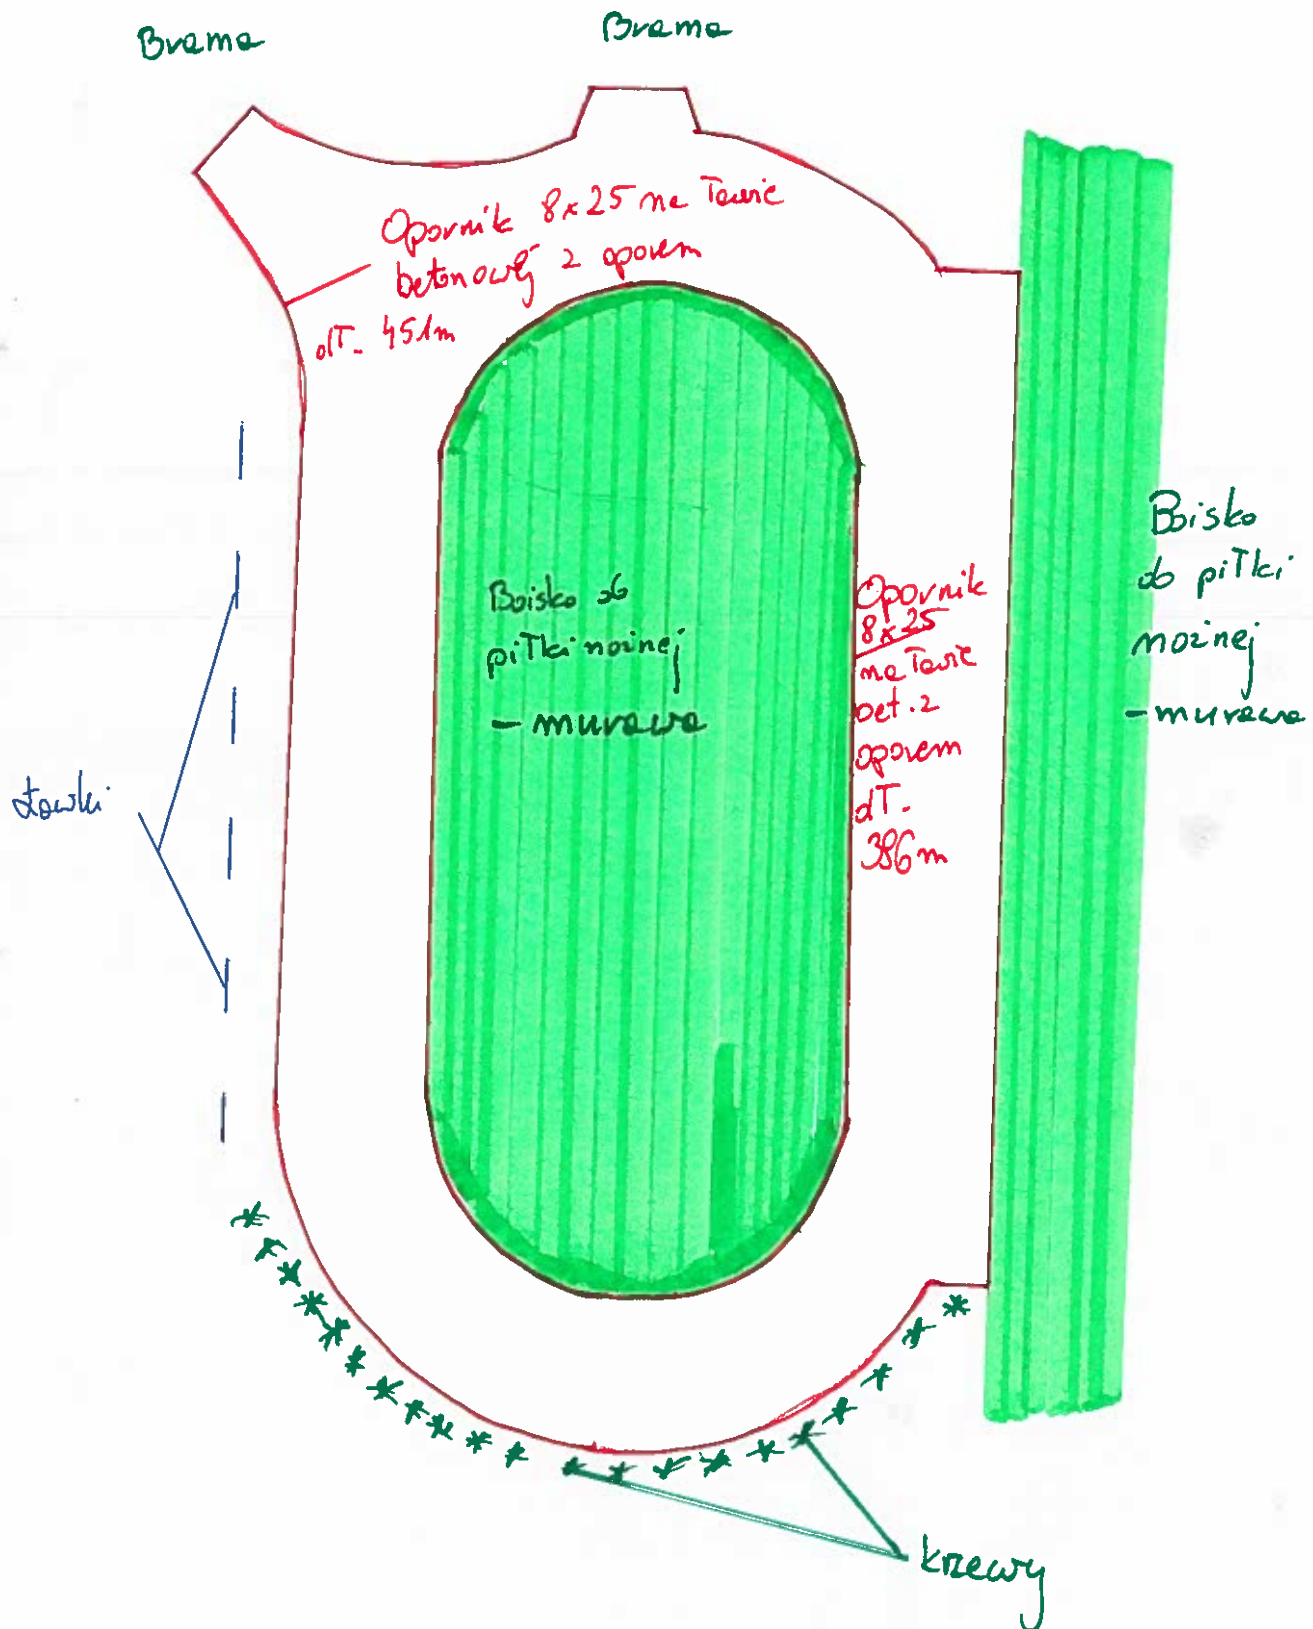 Brama
Brama
Opornik 8x25 na ławie
betonowej z oporem
dł. 451m
Boisko do
piłki nożnej
- murawa
Opornik
8x25
na ławie
bet. z
oporem
dł.
386m
Boisko
do piłki
nożnej
- murawa
Ławki
krzewy